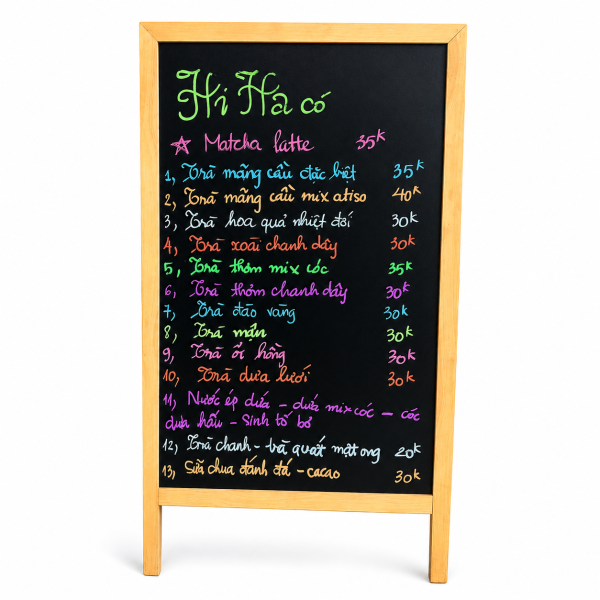 Hi Ha có
☆ Matcha latte 35k
1, Trà mãng cầu đặc biệt 35k
2, Trà mãng cầu mix atiso 40k
3, Trà hoa quả nhiệt đới 30k
4, Trà xoài chanh dây 30k
5, Trà thơm mix cóc 35k
6, Trà thơm chanh dây 30k
7, Trà đào vàng 30k
8, Trà mận 30k
9, Trà ổi hồng 30k
10, Trà dưa lưới 30k
11, Nước ép dứa - dứa mix cóc - cóc
dưa hấu - Sinh tố bơ
12, Trà chanh - trà quất mật ong 20k
13, Sữa chua đánh đá - cacao 30k